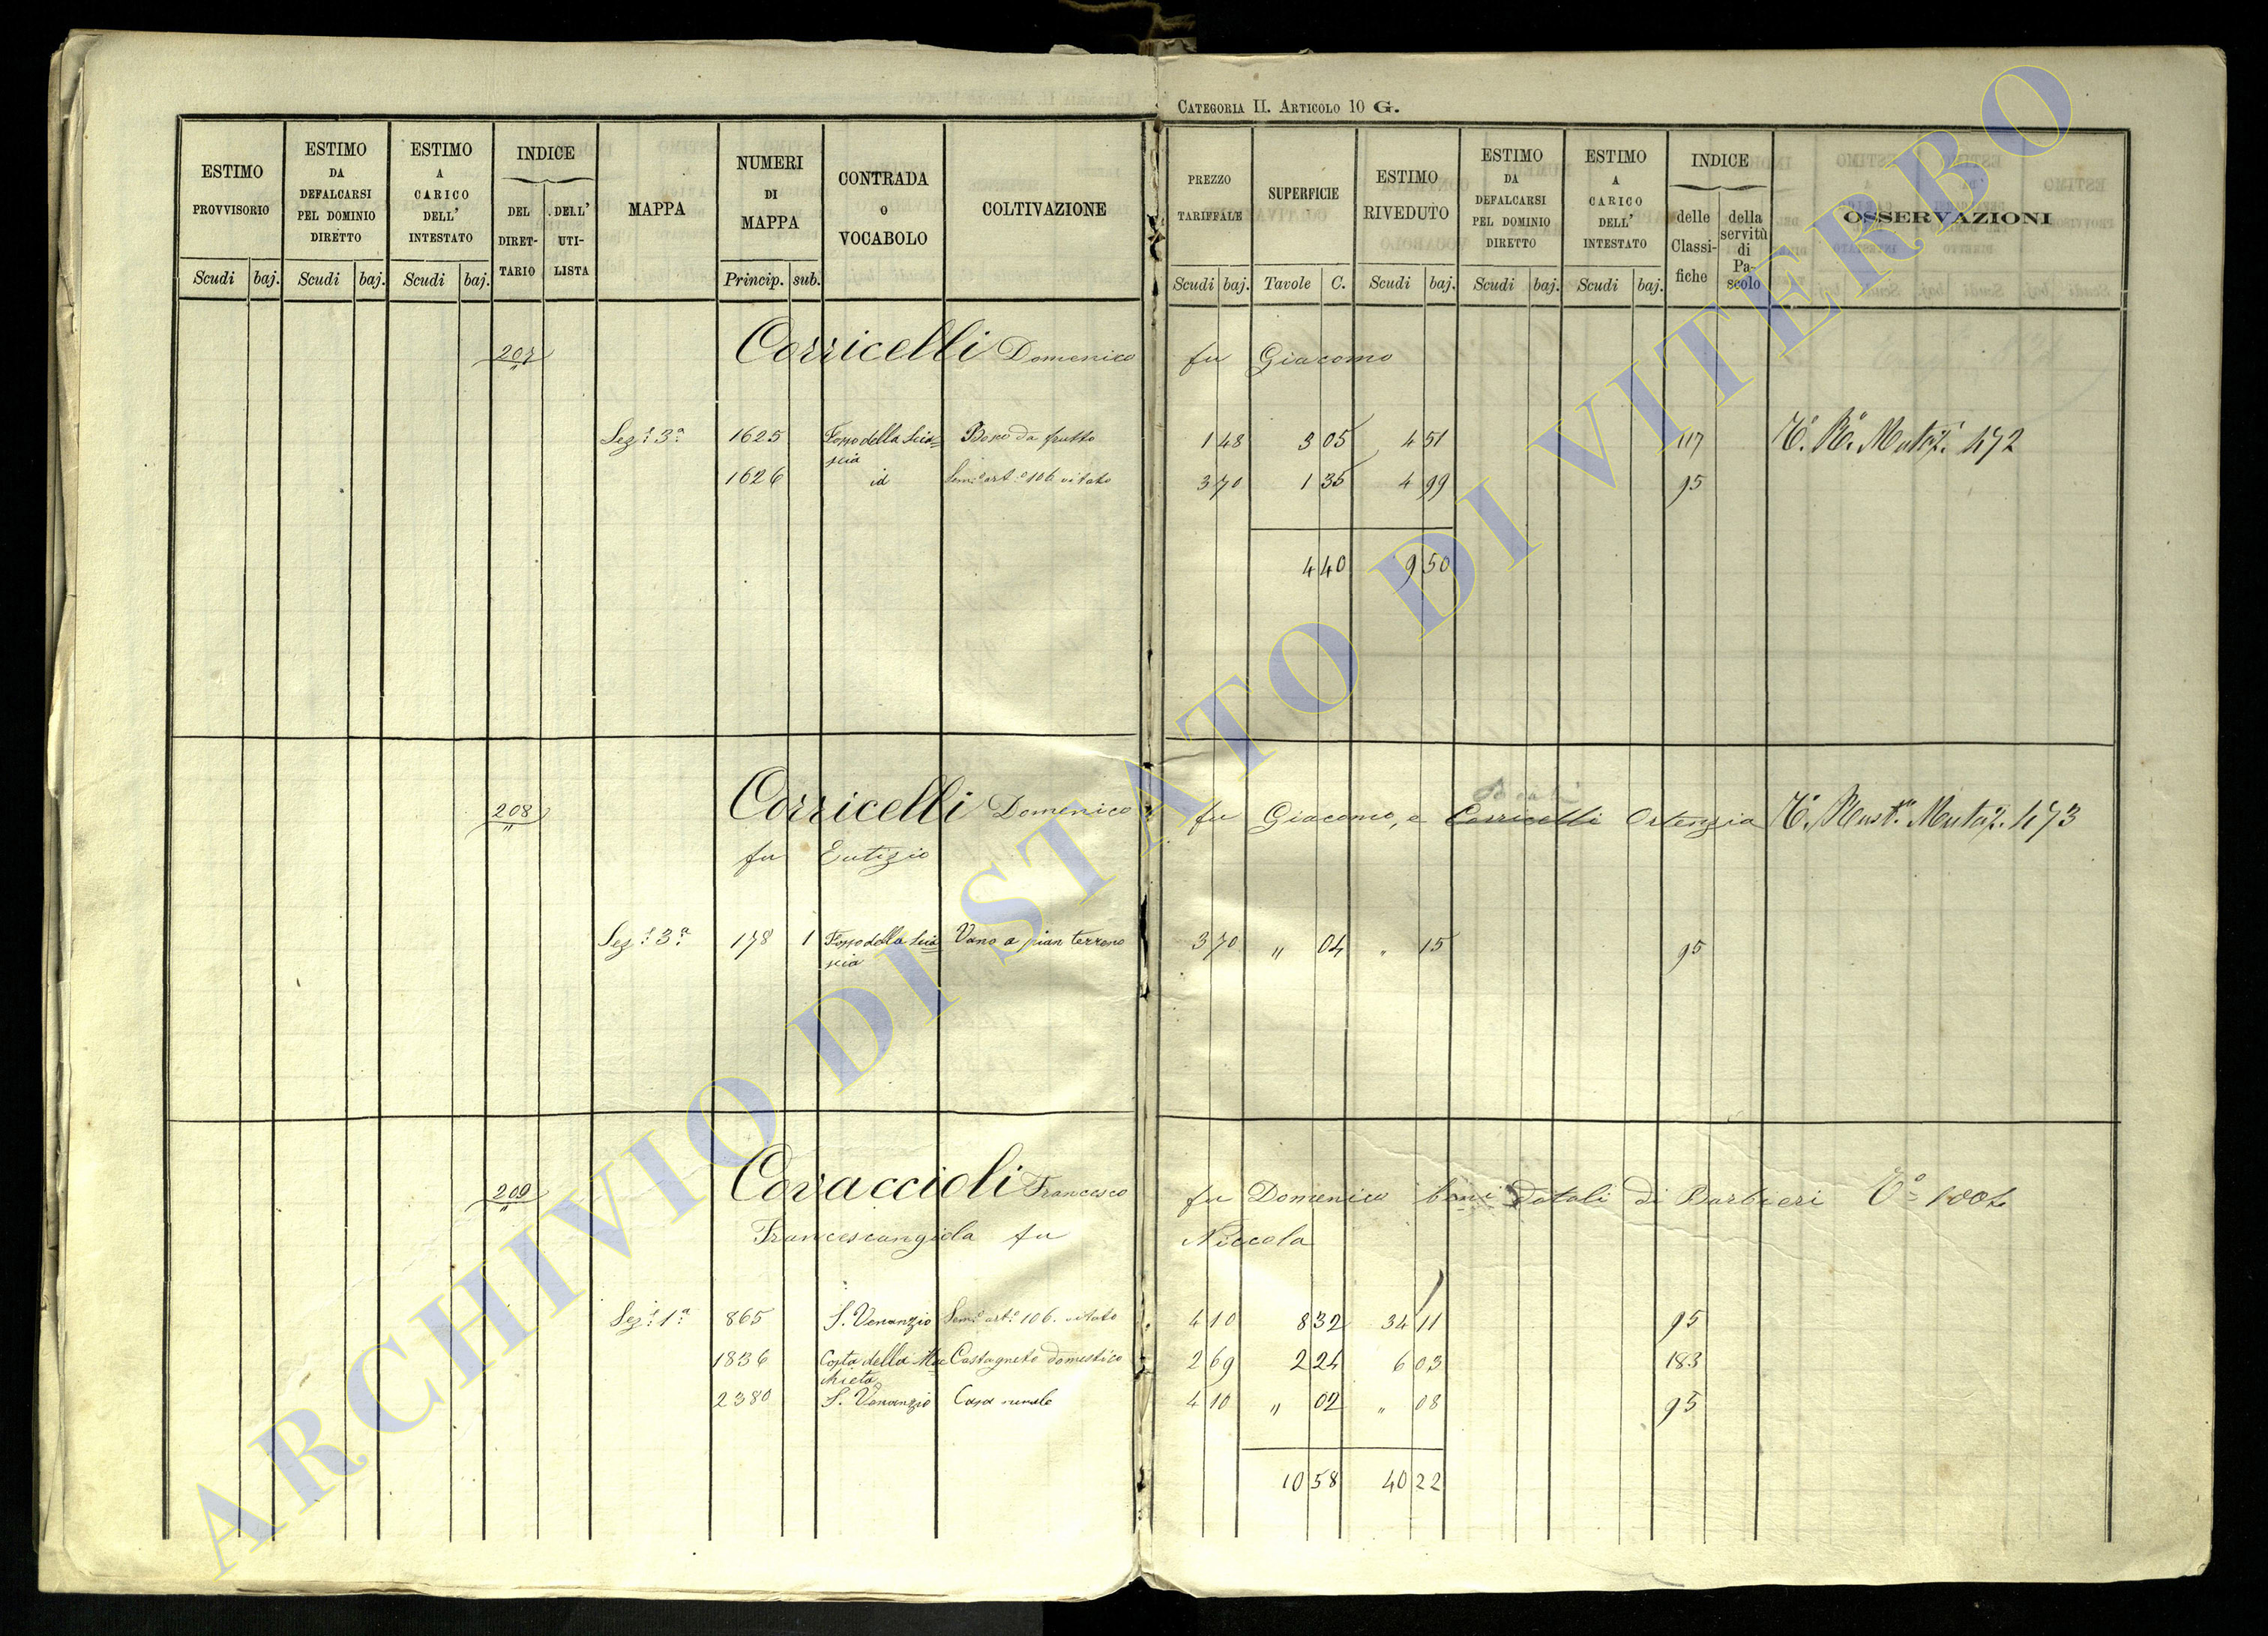 CATEGORIA II. ARTICOLO 10 G.
ESTIMO PROVVISORIO
ESTIMO DA DEFALCARSI PEL DOMINIO DIRETTO
ESTIMO A CARICO DELL' INTESTATO
INDICE
DEL DIRETTARIO
DELL' UTILISTA
MAPPA
NUMERI DI MAPPA
CONTRADA o VOCABOLO
COLTIVAZIONE
PREZZO TARIFFALE
SUPERFICIE
ESTIMO RIVEDUTO
ESTIMO DA DEFALCARSI PEL DOMINIO DIRETTO
ESTIMO A CARICO DELL' INTESTATO
INDICE
delle Classifiche
della servitù di Pascolo
OSSERVAZIONI
Scudi baj. Scudi baj. Scudi baj. Princip. sub. Scudi baj. Tavole C. Scudi baj. Scudi baj. Scudi baj.
207 Corricelli Domenico fu Giacomo
Sez.e 3a 1625 Fosso della Sciascia Bosco da frutto 1 48 3 05 4 51 117 Mutaz. 472
1626 id Sem.o art.o 106 vitato 3 70 1 35 4 99 95
4 40 9 50
208 Corricelli Domenico fu Giacomo, e Corricelli Ortenzia Mutaz. 473
fu Eutizio
Sez.e 3a 178 1 Fosso della Sciascia Vano a pian terreno 3 70 " 04 " 15 95
209 Covaccioli Francesco fu Domenico beni Dotali di Barbieri 1004
Francescangiola fu Niccola
Sez.e 1a 865 S. Venanzio Sem.o art.o 106. vitato 4 10 8 32 34 11 95
1836 Costa della Macchieta Castagneto domestico 2 69 2 24 6 03 183
2380 S. Venanzio Casa rurale 4 10 " 02 " 08 95
10 58 40 22
ARCHIVIO DI STATO DI VITERBO